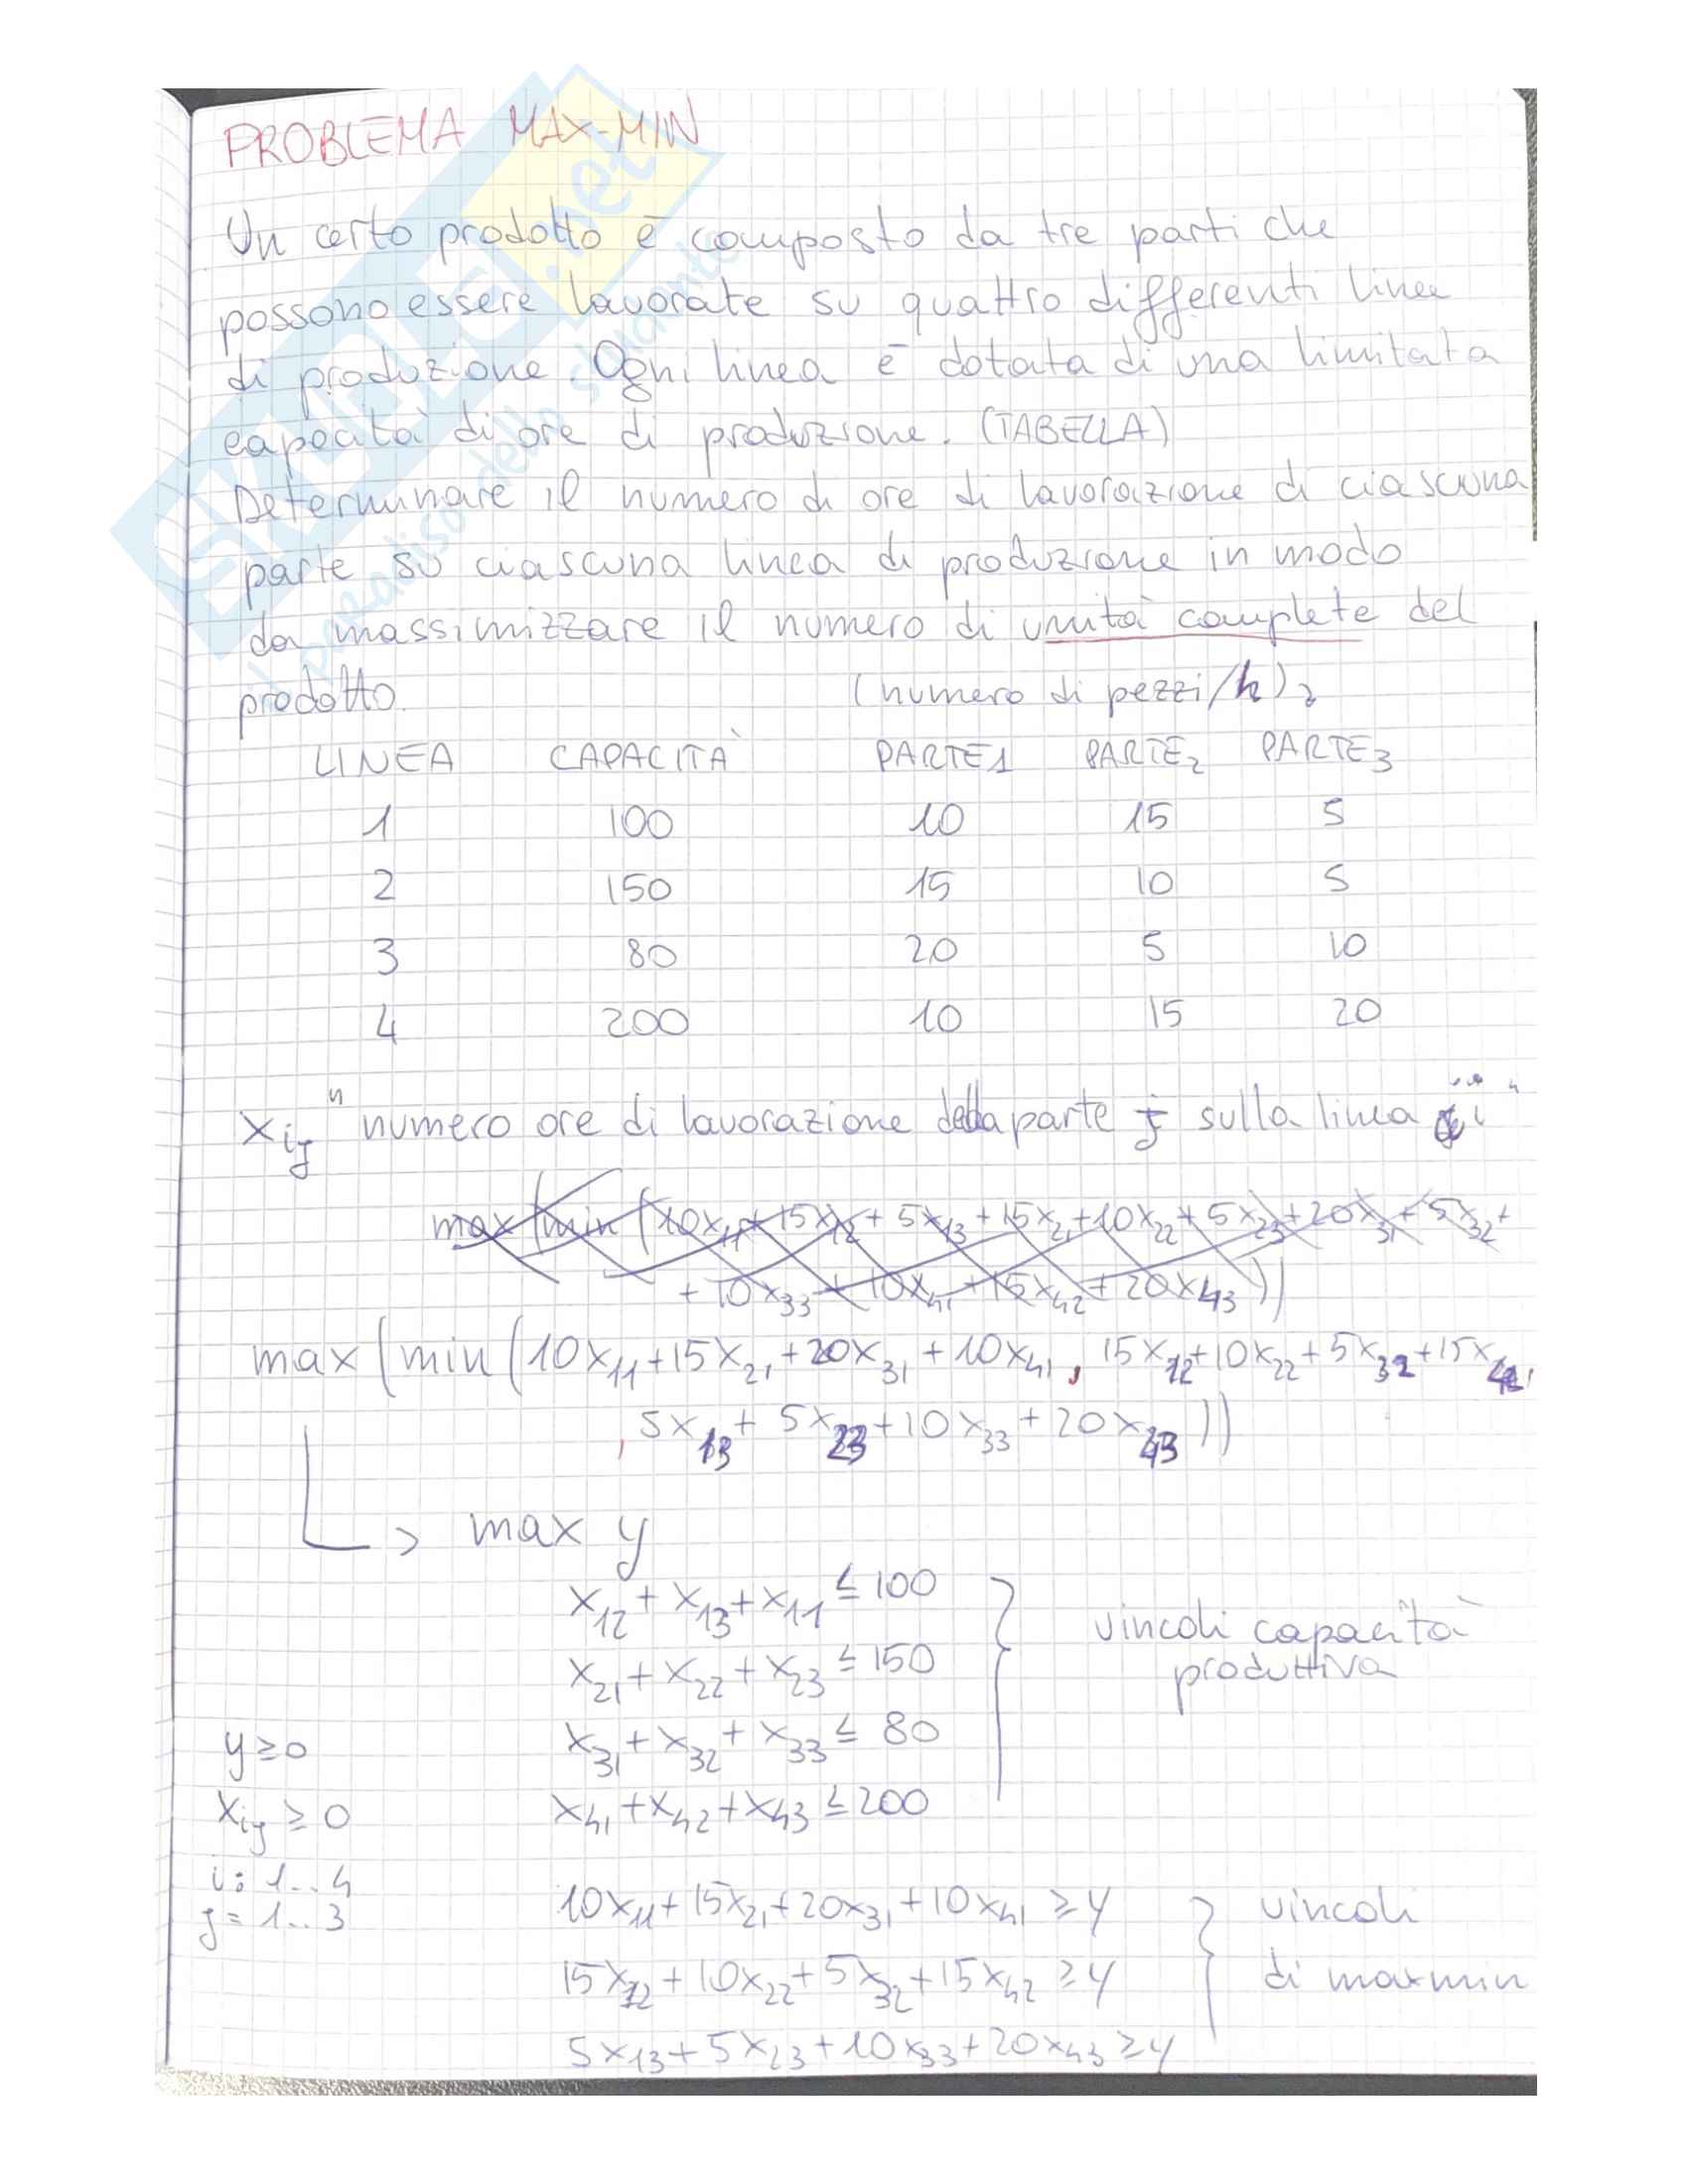 PROBLEMA MAX-MIN
Un certo prodotto è composto da tre parti che
possono essere lavorate su quattro differenti linee
di produzione. Ogni linea è dotata di una limitata
capacità di ore di produzione. (TABELLA)
Determinare il numero di ore di lavorazione di ciascuna
parte su ciascuna linea di produzione in modo
da massimizzare il numero di unità complete del
prodotto. (numero di pezzi/h)
LINEA CAPACITÀ PARTE1 PARTE2 PARTE3
1 100 10 15 5
2 150 15 10 5
3 80 20 5 10
4 200 10 15 20
xij "numero ore di lavorazione della parte j sulla linea i"
max(min(10x11+15x12+5x13+15x21+10x22+5x23+20x31+5x32+
+10x33+10x41+15x42+20x43))
max(min(10x11+15x21+20x31+10x41, 15x12+10x22+5x32+15x42,
, 5x13+5x23+10x33+20x43))
max y
x12+x13+x11≤100
vincoli capacità
x21+x22+x23≤150
produttiva
y≥0 x31+x32+x33≤80
xij≥0 x41+x42+x43≤200
i: 1..4
j=1..3
10x11+15x21+20x31+10x41≥y vincoli
15x12+10x22+5x32+15x42≥y di maxmin
5x13+5x23+10x33+20x43≥y
SKUOLA.net
il paradiso dello studente